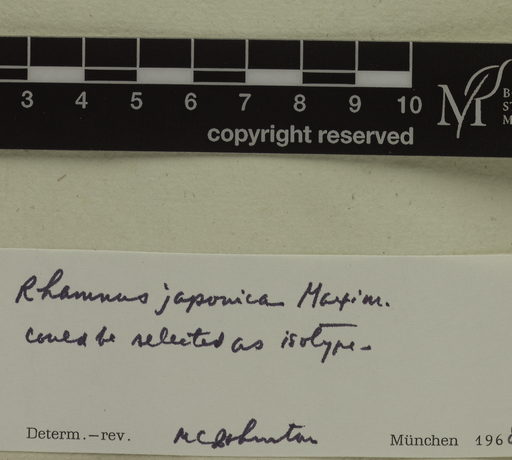 3 4 5 6 7 8 9 10
copyright reserved
M B
S
M
Rhamnus japonica Maxim.
could be selected as isotype -
Determ.-rev. MC Johnston München 196